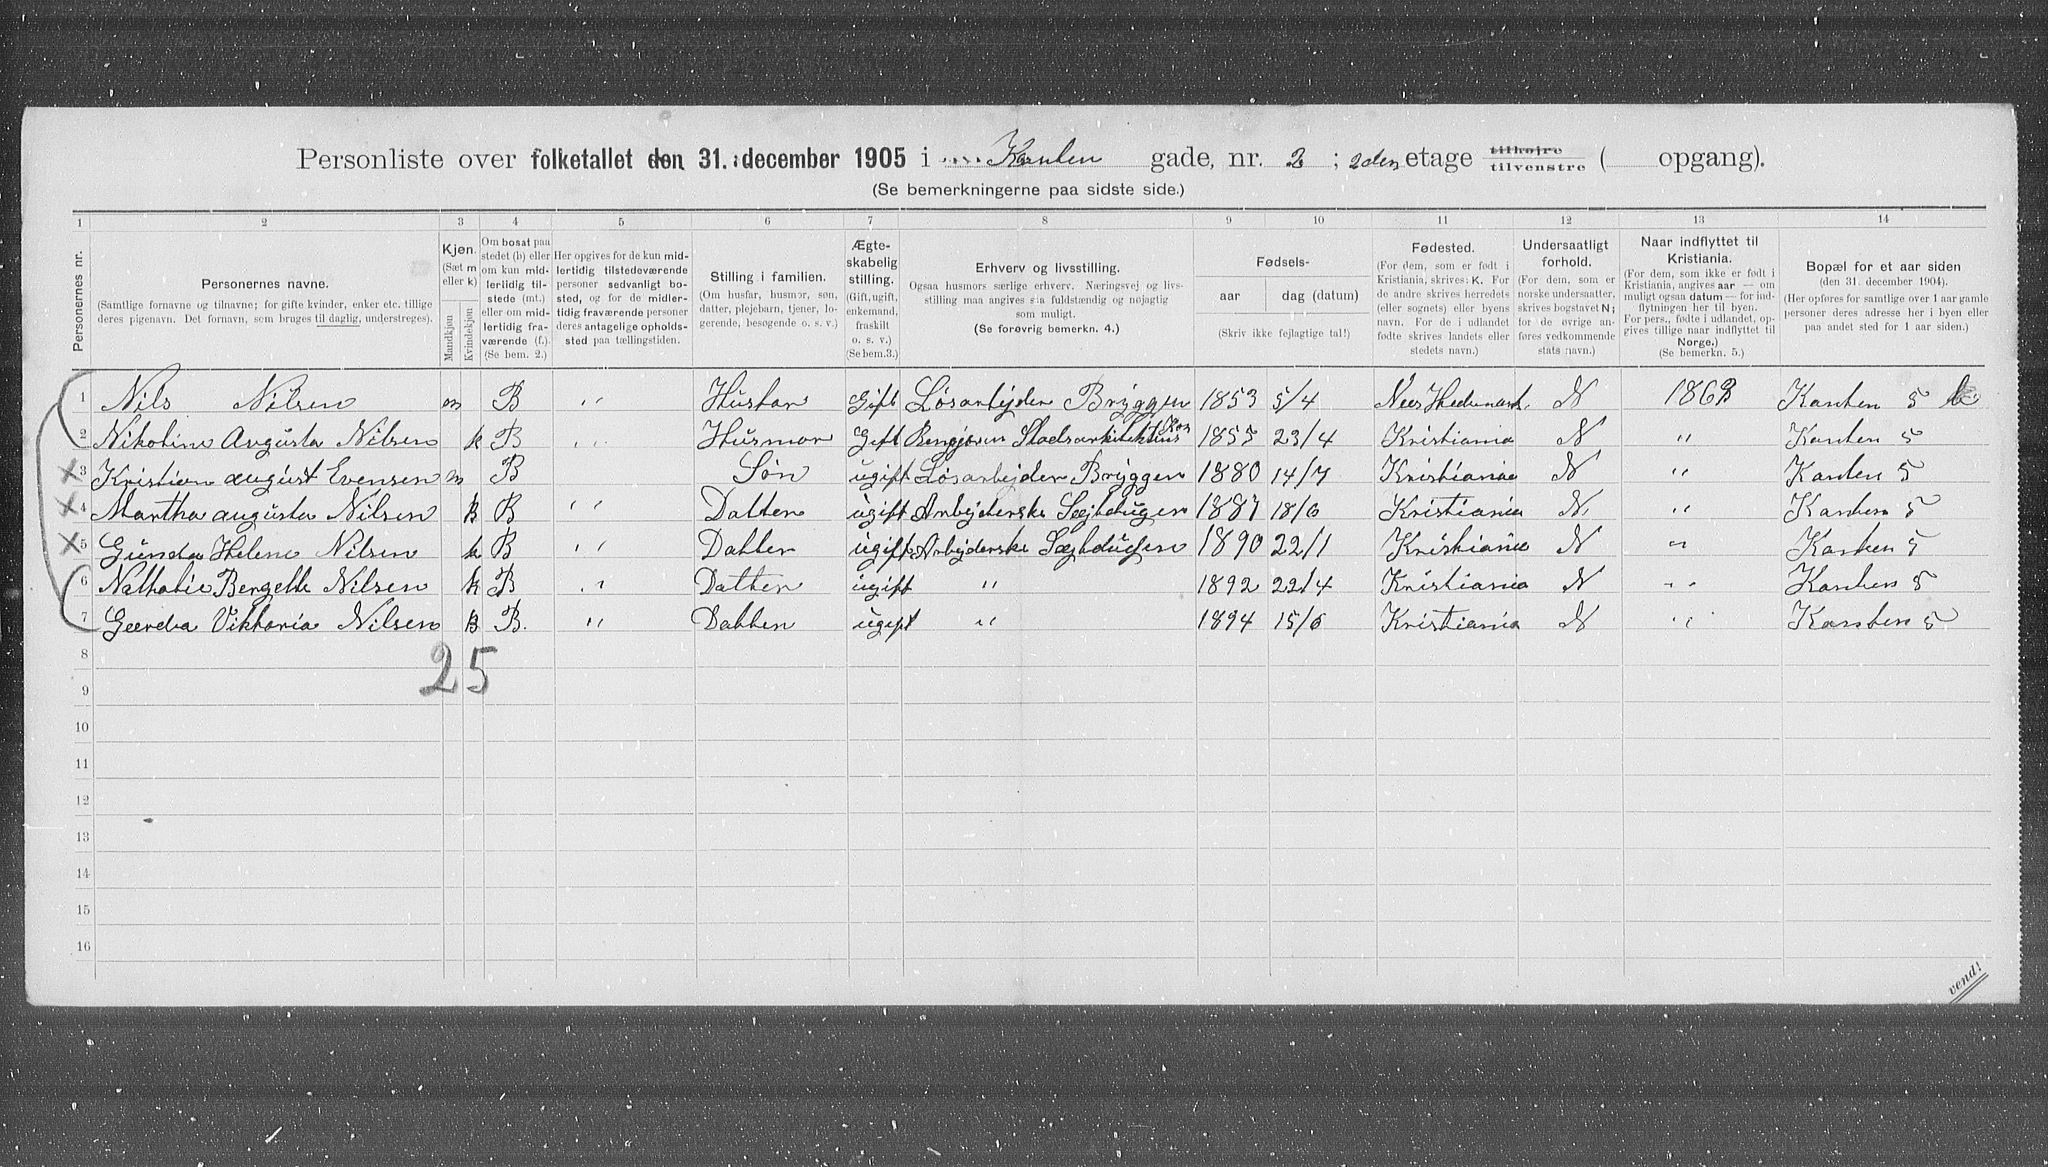 Personliste over folketallet den 31. december 1905 i Kanten gade, nr. 2 ; 2den etage tilhøjre tilvenstre ( opgang).
(Se bemerkningerne paa sidste side.)
1 2 3 4 5 6 7 8 9 10 11 12 13 14
Personernes nr.
Personernes navne.
(Samtlige fornavne og tilnavne; for gifte kvinder, enker etc. tillige
deres pigenavn. Det fornavn, som bruges til daglig, understreges).
Kjøn.
(Sæt m
eller k)
Mandkjøn
Kvindekjøn
Om bosat paa
stedet (b) eller
om kun mid-
lertidig til-
stede (mt.)
eller om mid-
lertidig fra-
værende (f.).
(Se bem. 2.)
Her opgives for de kun mid-
lertidig tilstedeværende
personer sedvanlig bo-
sted, og for de midler-
tidig fraværende personer
deres antagelige opholds-
sted paa tællingstiden.
Stilling i familien.
(Om husfar, husmor, søn,
datter, plejebarn, tjener, lo-
gerende, besøgende o. s. v.)
Ægte-
skabelig
stilling.
(Gift, ugift,
enkemand,
fraskilt
o. s. v.)
(Se bem. 3.)
Erhverv og livsstilling.
Ogsaa husmors særlige erhverv. Næringsvej og livs-
stilling maa angives saa fuldstændig og nøjagtig
som muligt.
(Se forøvrig bemerkn. 4.)
Fødsels-
aar dag (datum)
(Skriv ikke fejlagtige tal!)
Fødested.
(For dem, som er født i
Kristiania, skrives: K. For
de andre skrives herredets
(eller sognets) eller byens
navn. For de i udlandet
fødte skrives landets eller
stedets navn.)
Undersaatligt
forhold.
(For dem, som er
norske undersaatter,
skrives bogstavet N;
for de øvrige an-
føres vedkommende
stats navn.)
Naar indflyttet til
Kristiania.
(For dem, som ikke er født i
Kristiania, angives aar — om
muligt ogsaa datum — for ind-
flytningen her til byen.
For pers., fødte i udlandet, op-
gives tillige naar indflyttet til
Norge.)
(Se bemerkn. 5.)
Bopæl for et aar siden
(den 31. december 1904).
(Her opføres for samtlige over 1 aar gamle
personer deres adresse her i byen eller
paa andet sted for 1 aar siden.)
1 Nils Nilsen m B " Husfar Gift Løsarbejder Bryggen 1853 5/4 Nes Hedemark N 1862 Kanten 5
2 Nikoline Augusta Nilsen k B " Husmor Gift Stadsarkitektens 1855 23/4 Kristiania N " Kanten 5
3 Kristian august Evensen m B Søn ugift Løsarbejder Bryggen 1880 14/7 Kristiania N " Kanten 5
4 Martha augusta Nilsen k B " Datter ugift Arbejderske Sejldugen 1887 18/6 Kristiania N. " Kanten 5
5 Gunda Helene Nilsen k B " Datter ugift Arbejderske Sejldugen 1890 22/1 Kristiania N " Kanten 5
6 Nathalie Bergette Nilsen k B " Datter ugift " 1892 22/4 Kristiania N " Kanten 5
7 Gerda Viktoria Nilsen k B. " Datter ugift " 1894 15/6 Kristiania N " Kanten 5
8
25
9
10
11
12
13
14
15
16
vend!